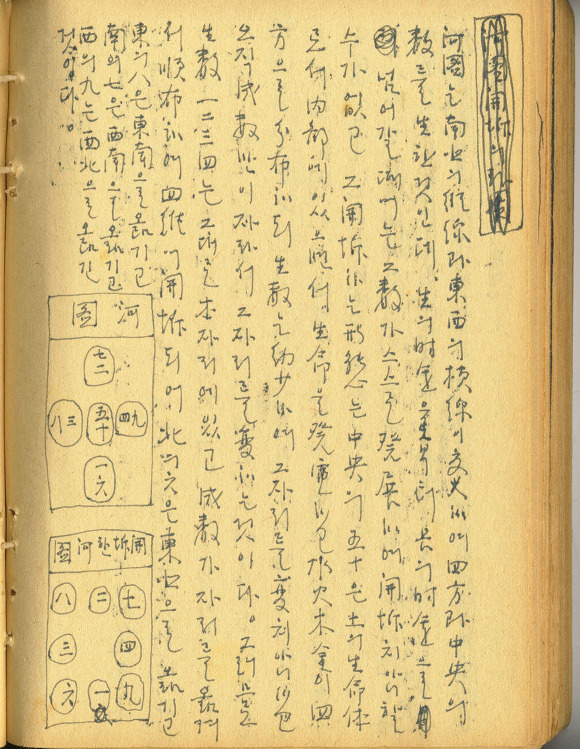 河圖開坼의
河圖는 南北의 縱線과 東西의 橫線이 交叉하여 四方과 中央의
數를 生한것인데 生의 時運으로부터 長의 時運으로
넘어갈때에는 그 數가 스스로 發展하여 開坼치아니할
수가 없고 그 開坼하는 形態는 中央의 五十은 土의 生命体
로서 內部에 있으면서 生命을 하고 水火木金이 四
方으로 分布하되 生數는 幼少하여 그 자리를 變치아니하고
오직 成數만이 자라서 그 자리를 變하는것이다. 그러므로
生數 一二三四는 그대로 本자리에 있고 成數가 자리를 옮겨
서 順布하여 四維에 開坼되어 北의 六은 東北으로 옮기고
東의 八은 東南으로 옮기고
南의 七은 西南으로 옮기고
西의 九는 西北으로 옮긴
것이다.
河圖
七二
八三 五十 九四
一六
開坼한河圖
八 二 七
三 四
六 一 九